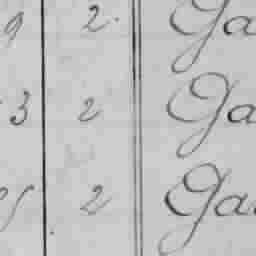 9 2. Ga
3 2 Ga
25 2 Ga